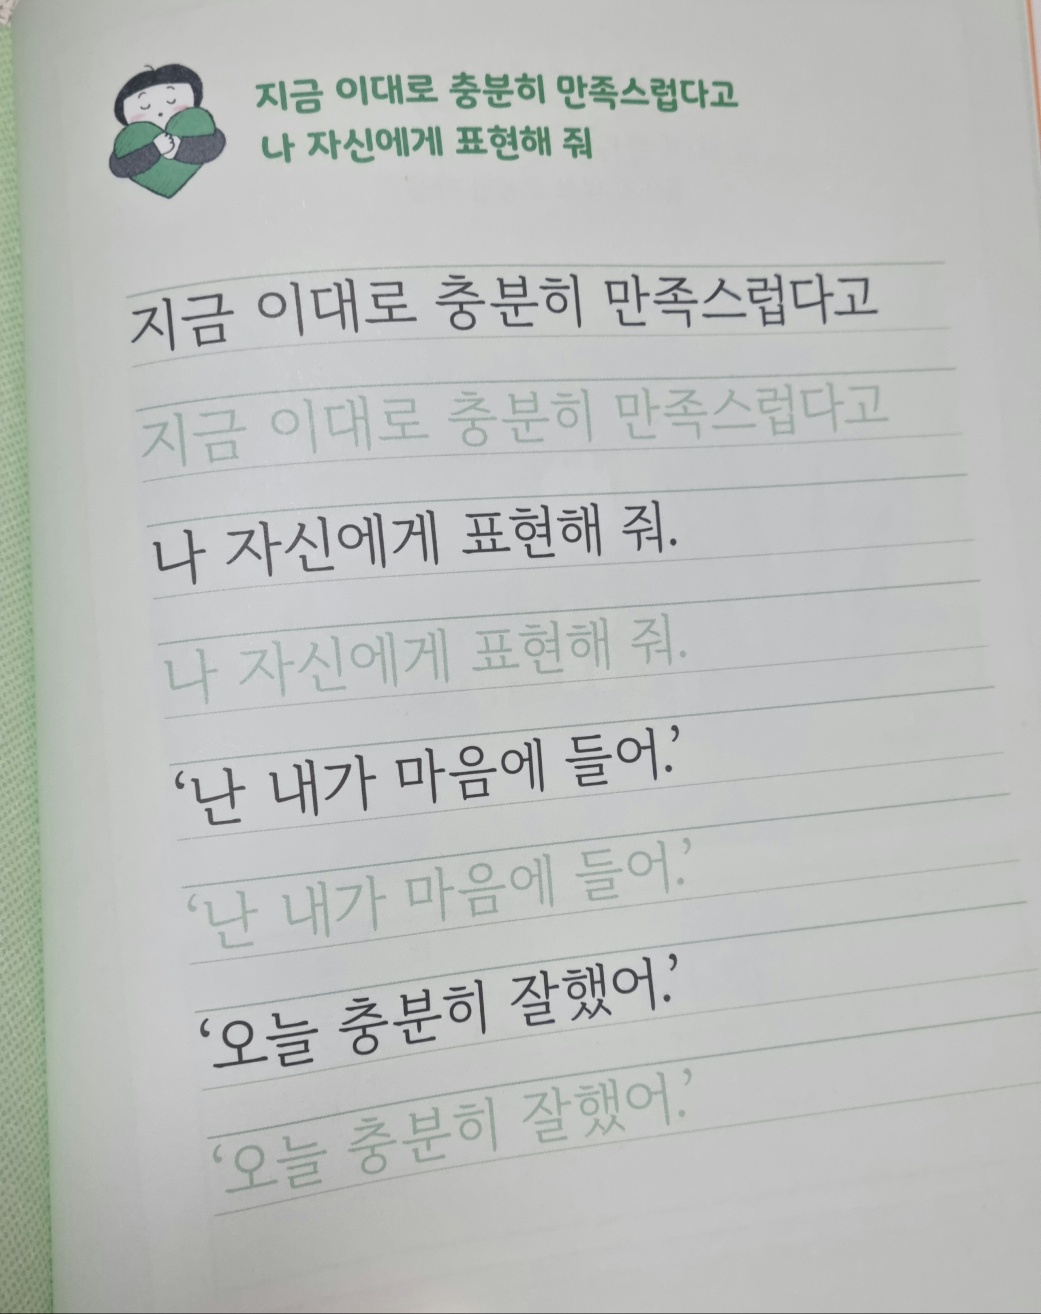 지금 이대로 충분히 만족스럽다고
나 자신에게 표현해 줘
지금 이대로 충분히 만족스럽다고
지금 이대로 충분히 만족스럽다고
나 자신에게 표현해 줘.
나 자신에게 표현해 줘.
‘난 내가 마음에 들어.’
‘난 내가 마음에 들어.’
‘오늘 충분히 잘했어.’
‘오늘 충분히 잘했어.’